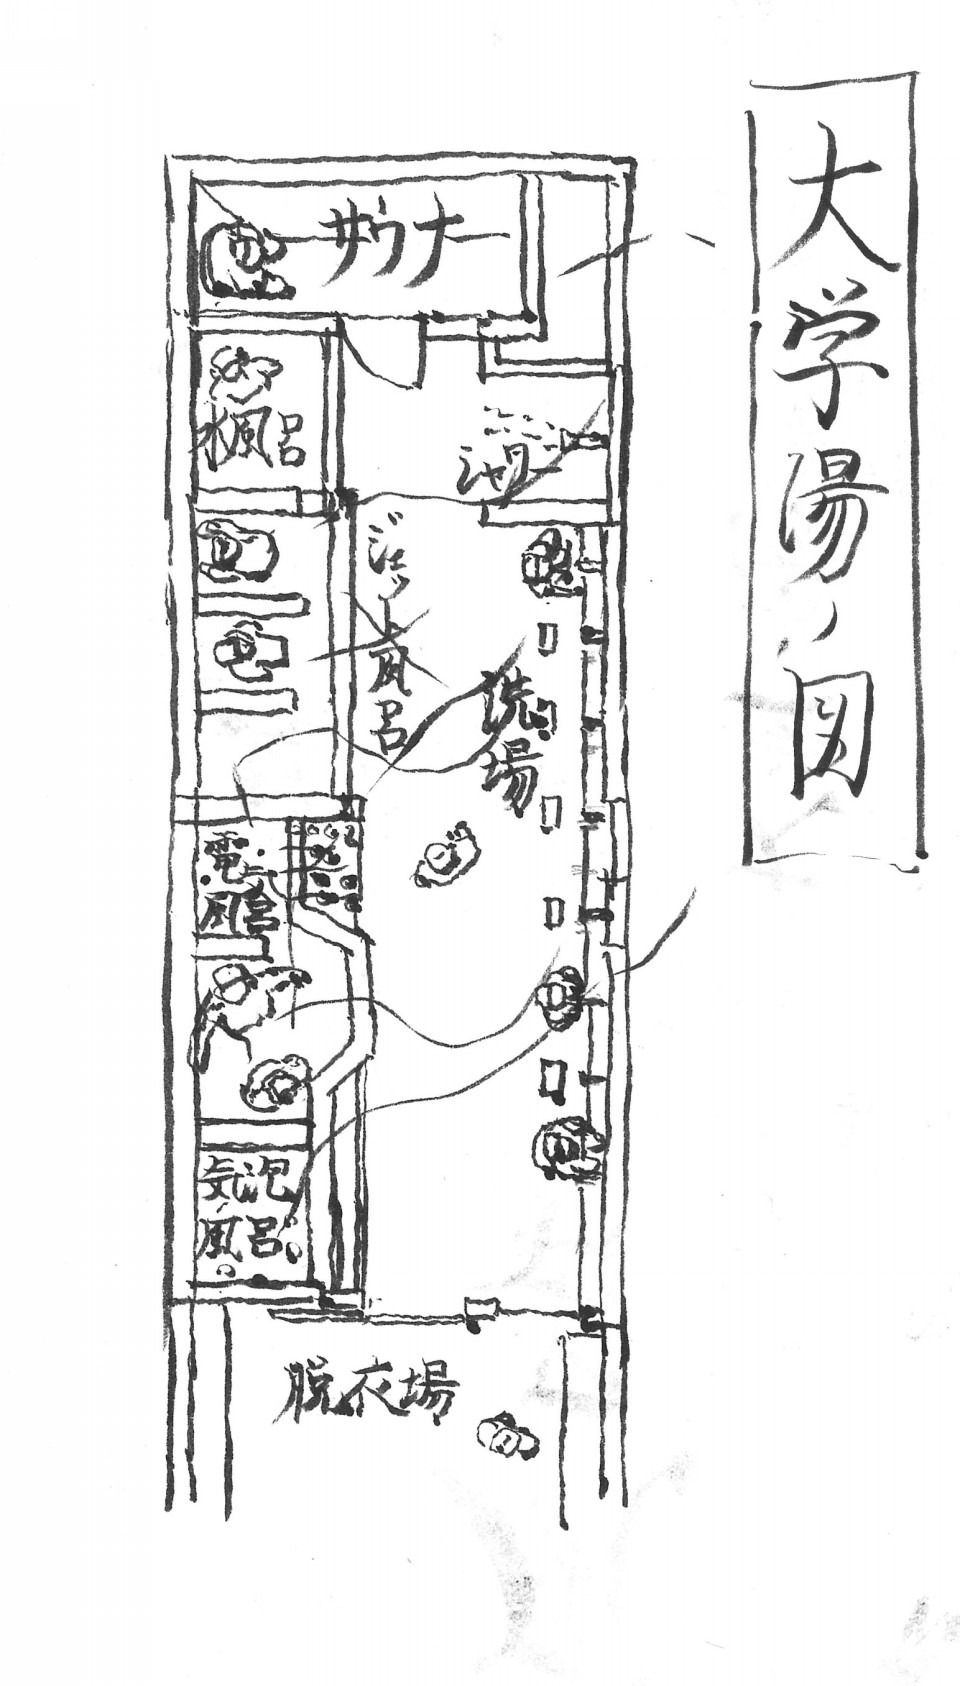 大学湯ノ図
サウナ
水風呂
シャワー
ジェット風呂
洗場
電気
風呂
気泡
風呂
脱衣場